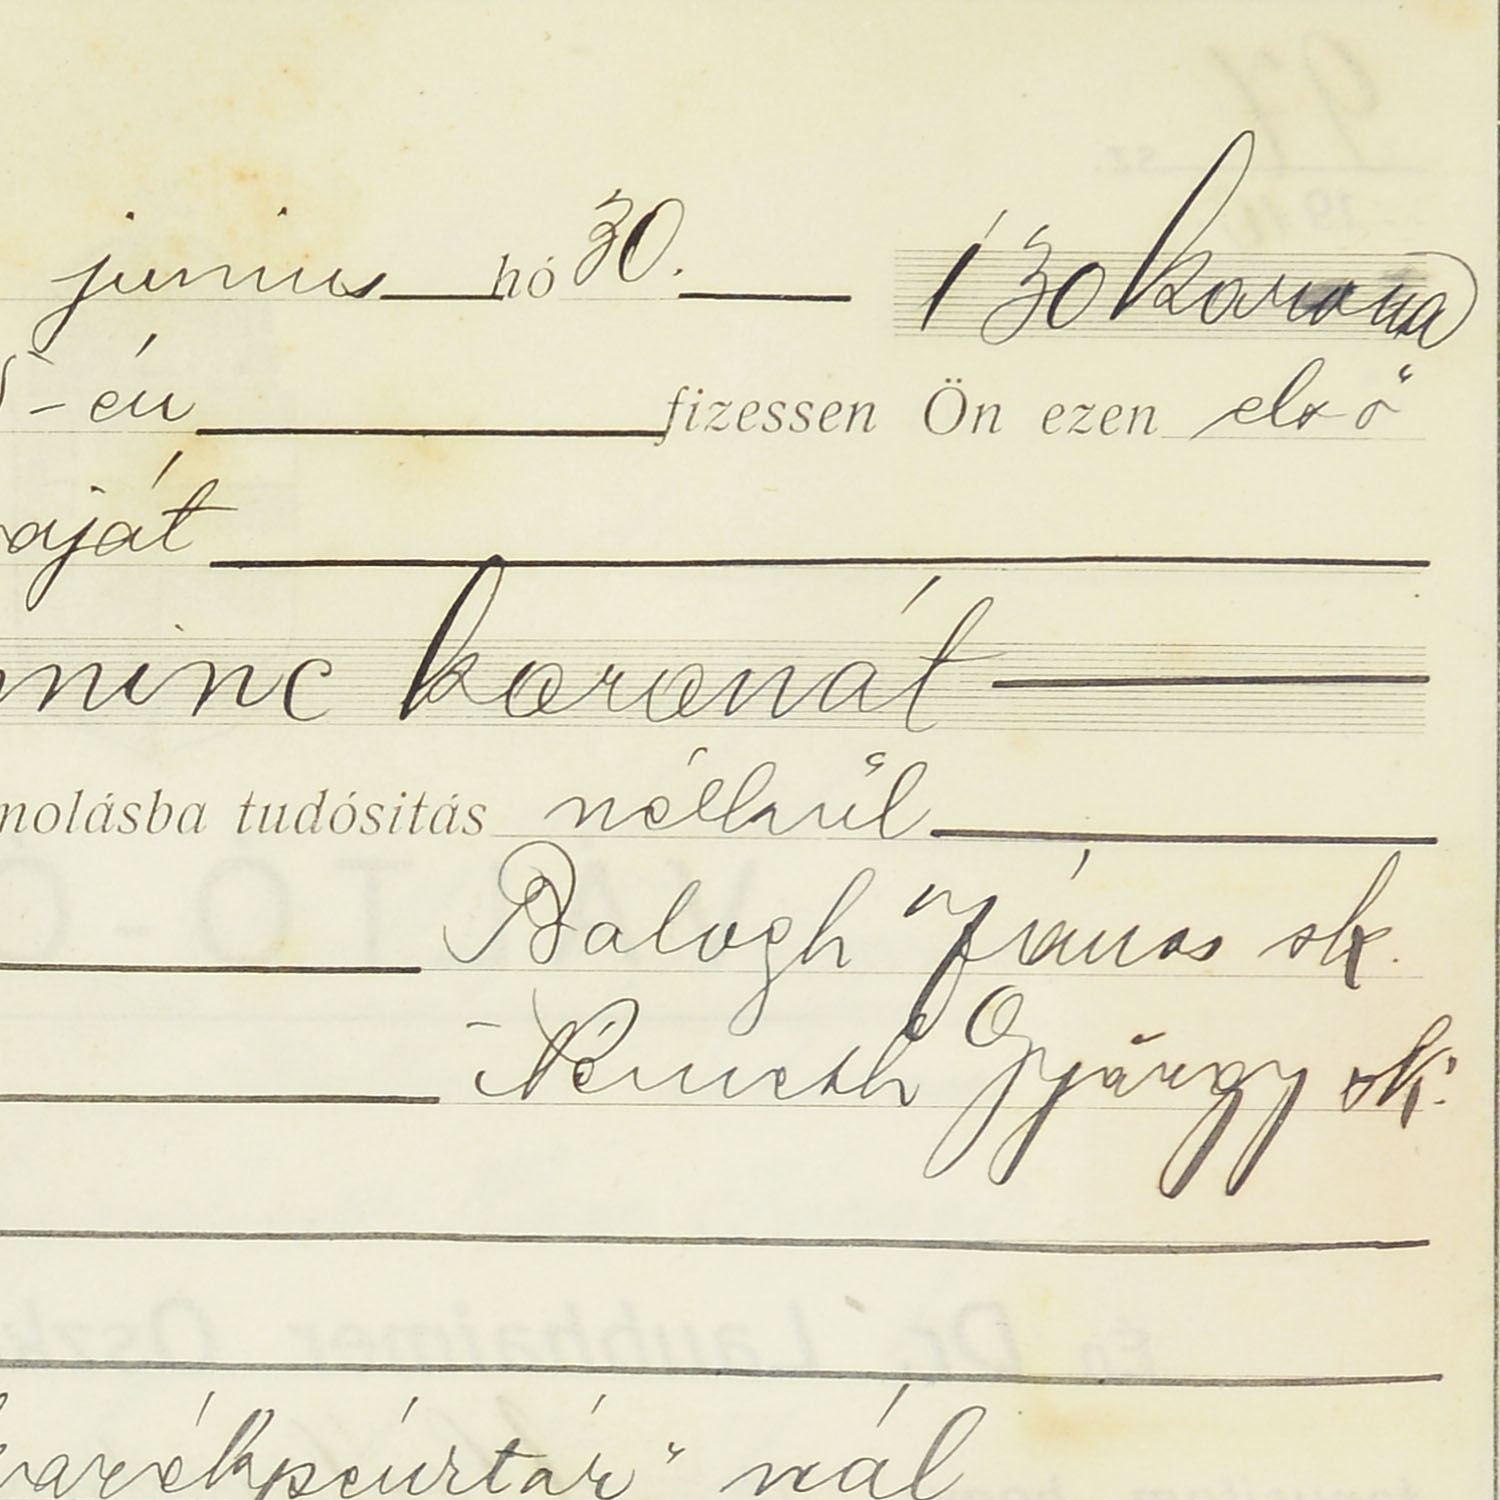 junius hó 30. 130 korona
-én fizessen Ön ezen első
saját
minc koronát
molásba tudósitás nélkűl
Balogh János sk.
Németh György sk.
takarékpénztár" nál